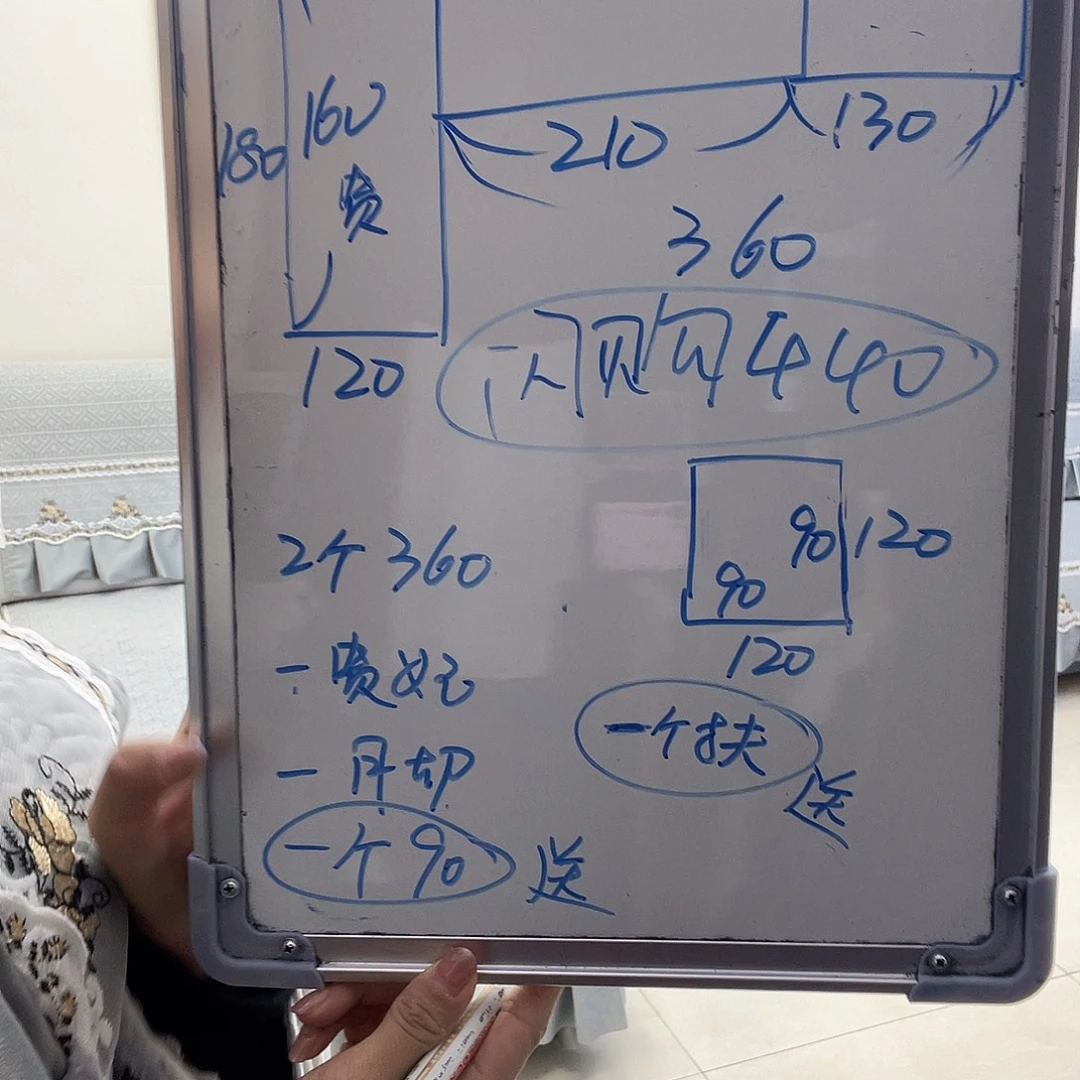 180
160
贵
120
210
130
360
闪购440
2个360
一贵妃
一月却
一个90
送
90
90
120
120
一个扶
送